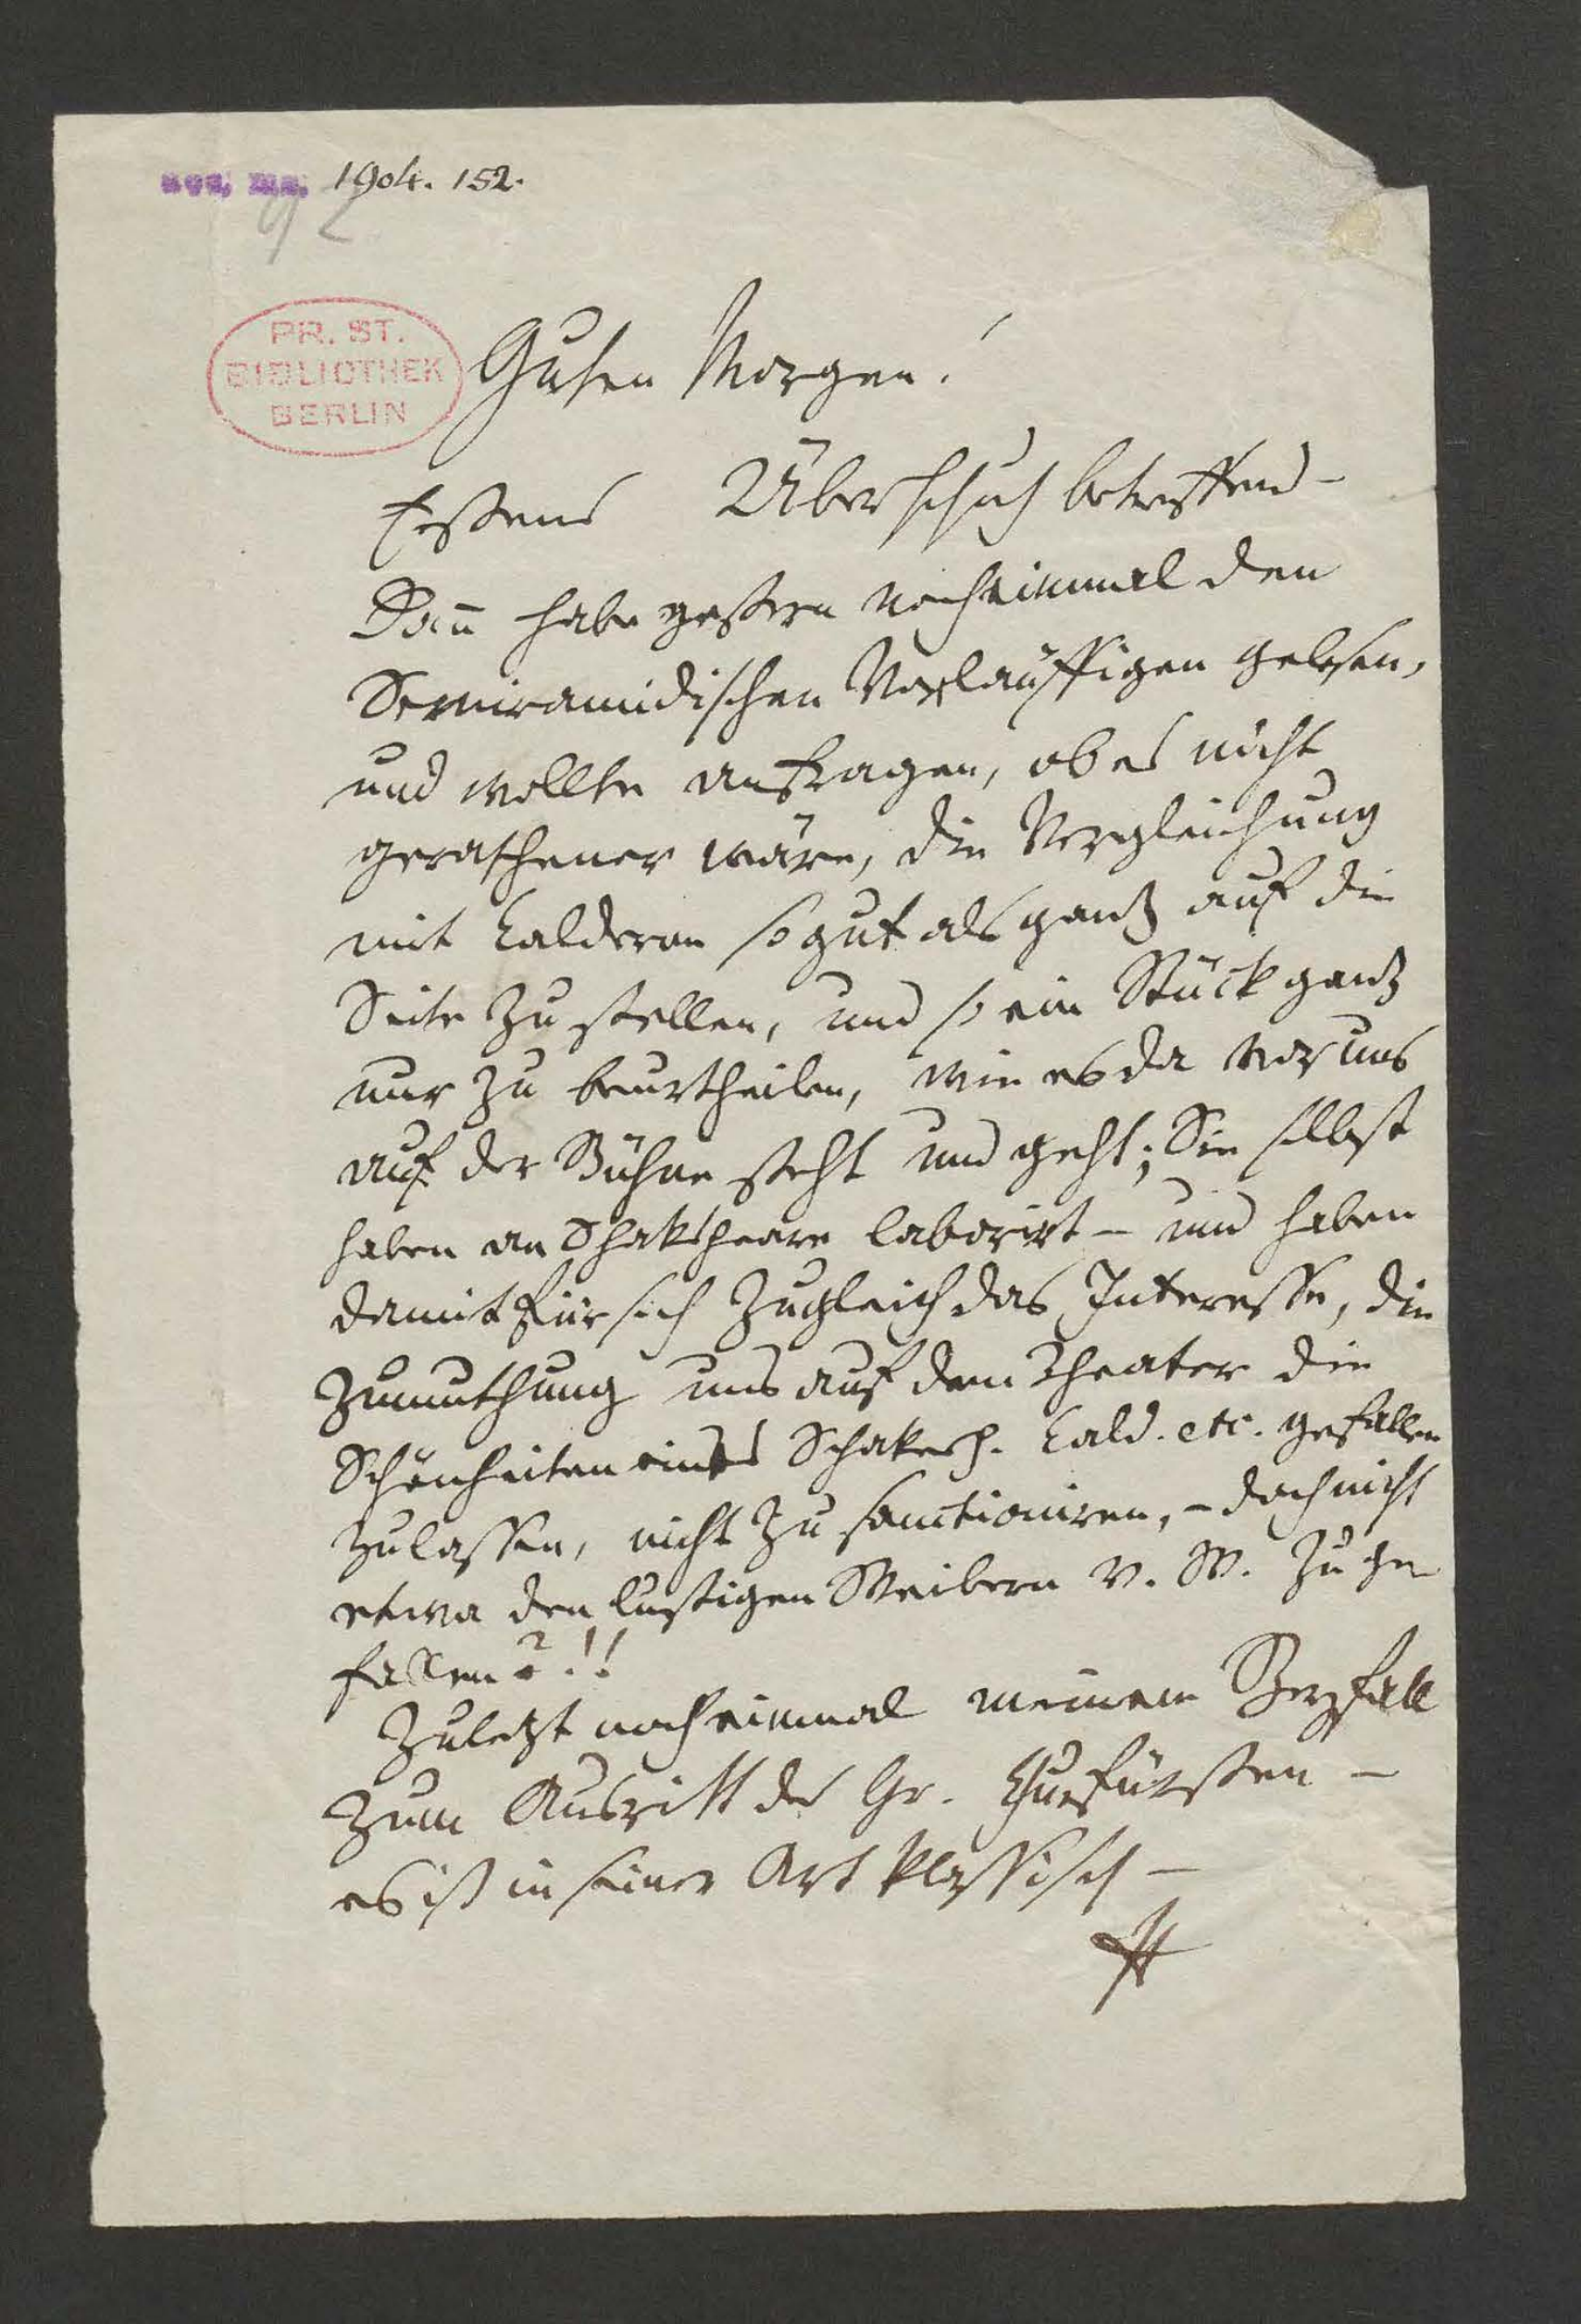 acc. ms. 1904. 152.
92
PR. ST.
BIBLIOTHEK
BERLIN
Guten Morgen!
Erstens Überschuh betreffend –
Dann habe gestern nocheinmal den
Semiramidischen Vorläuffigen gelesen,
und wollte anfragen, ob es nicht
gerathener wäre, die Vergleichung
mit Calderon so gut als ganz auf die
Seite zu stellen, und so ein Stück ganz
nur zu beurtheilen, wie es da vor uns
auf der Bühne steht und geht; Sie selbst
haben an Shakspeare laborirt – und haben
damit für sich zugleich das Interesse, die
Zumuthung uns auf dem Theater die
Schönheiten eines Schakesp. Cald. etc. gefallen
zu lassen, nicht zu sanctioniren, – doch nicht
etwa den lustigen Weibern v. W. zu ge
fallen?!!
Zuletzt noch einmal meinen Beyfall
zum Ausritt des Gr. Churfürsten –
es ist in seiner Art klassisch –